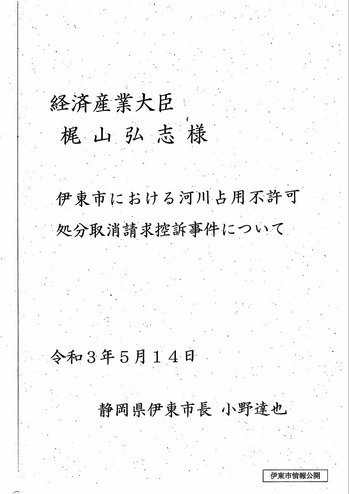 経済産業大臣
梶山弘志様
伊東市における河川占用不許可
処分取消請求控訴事件について
令和３年５月１４日
静岡県伊東市長 小野達也
伊東市情報公開